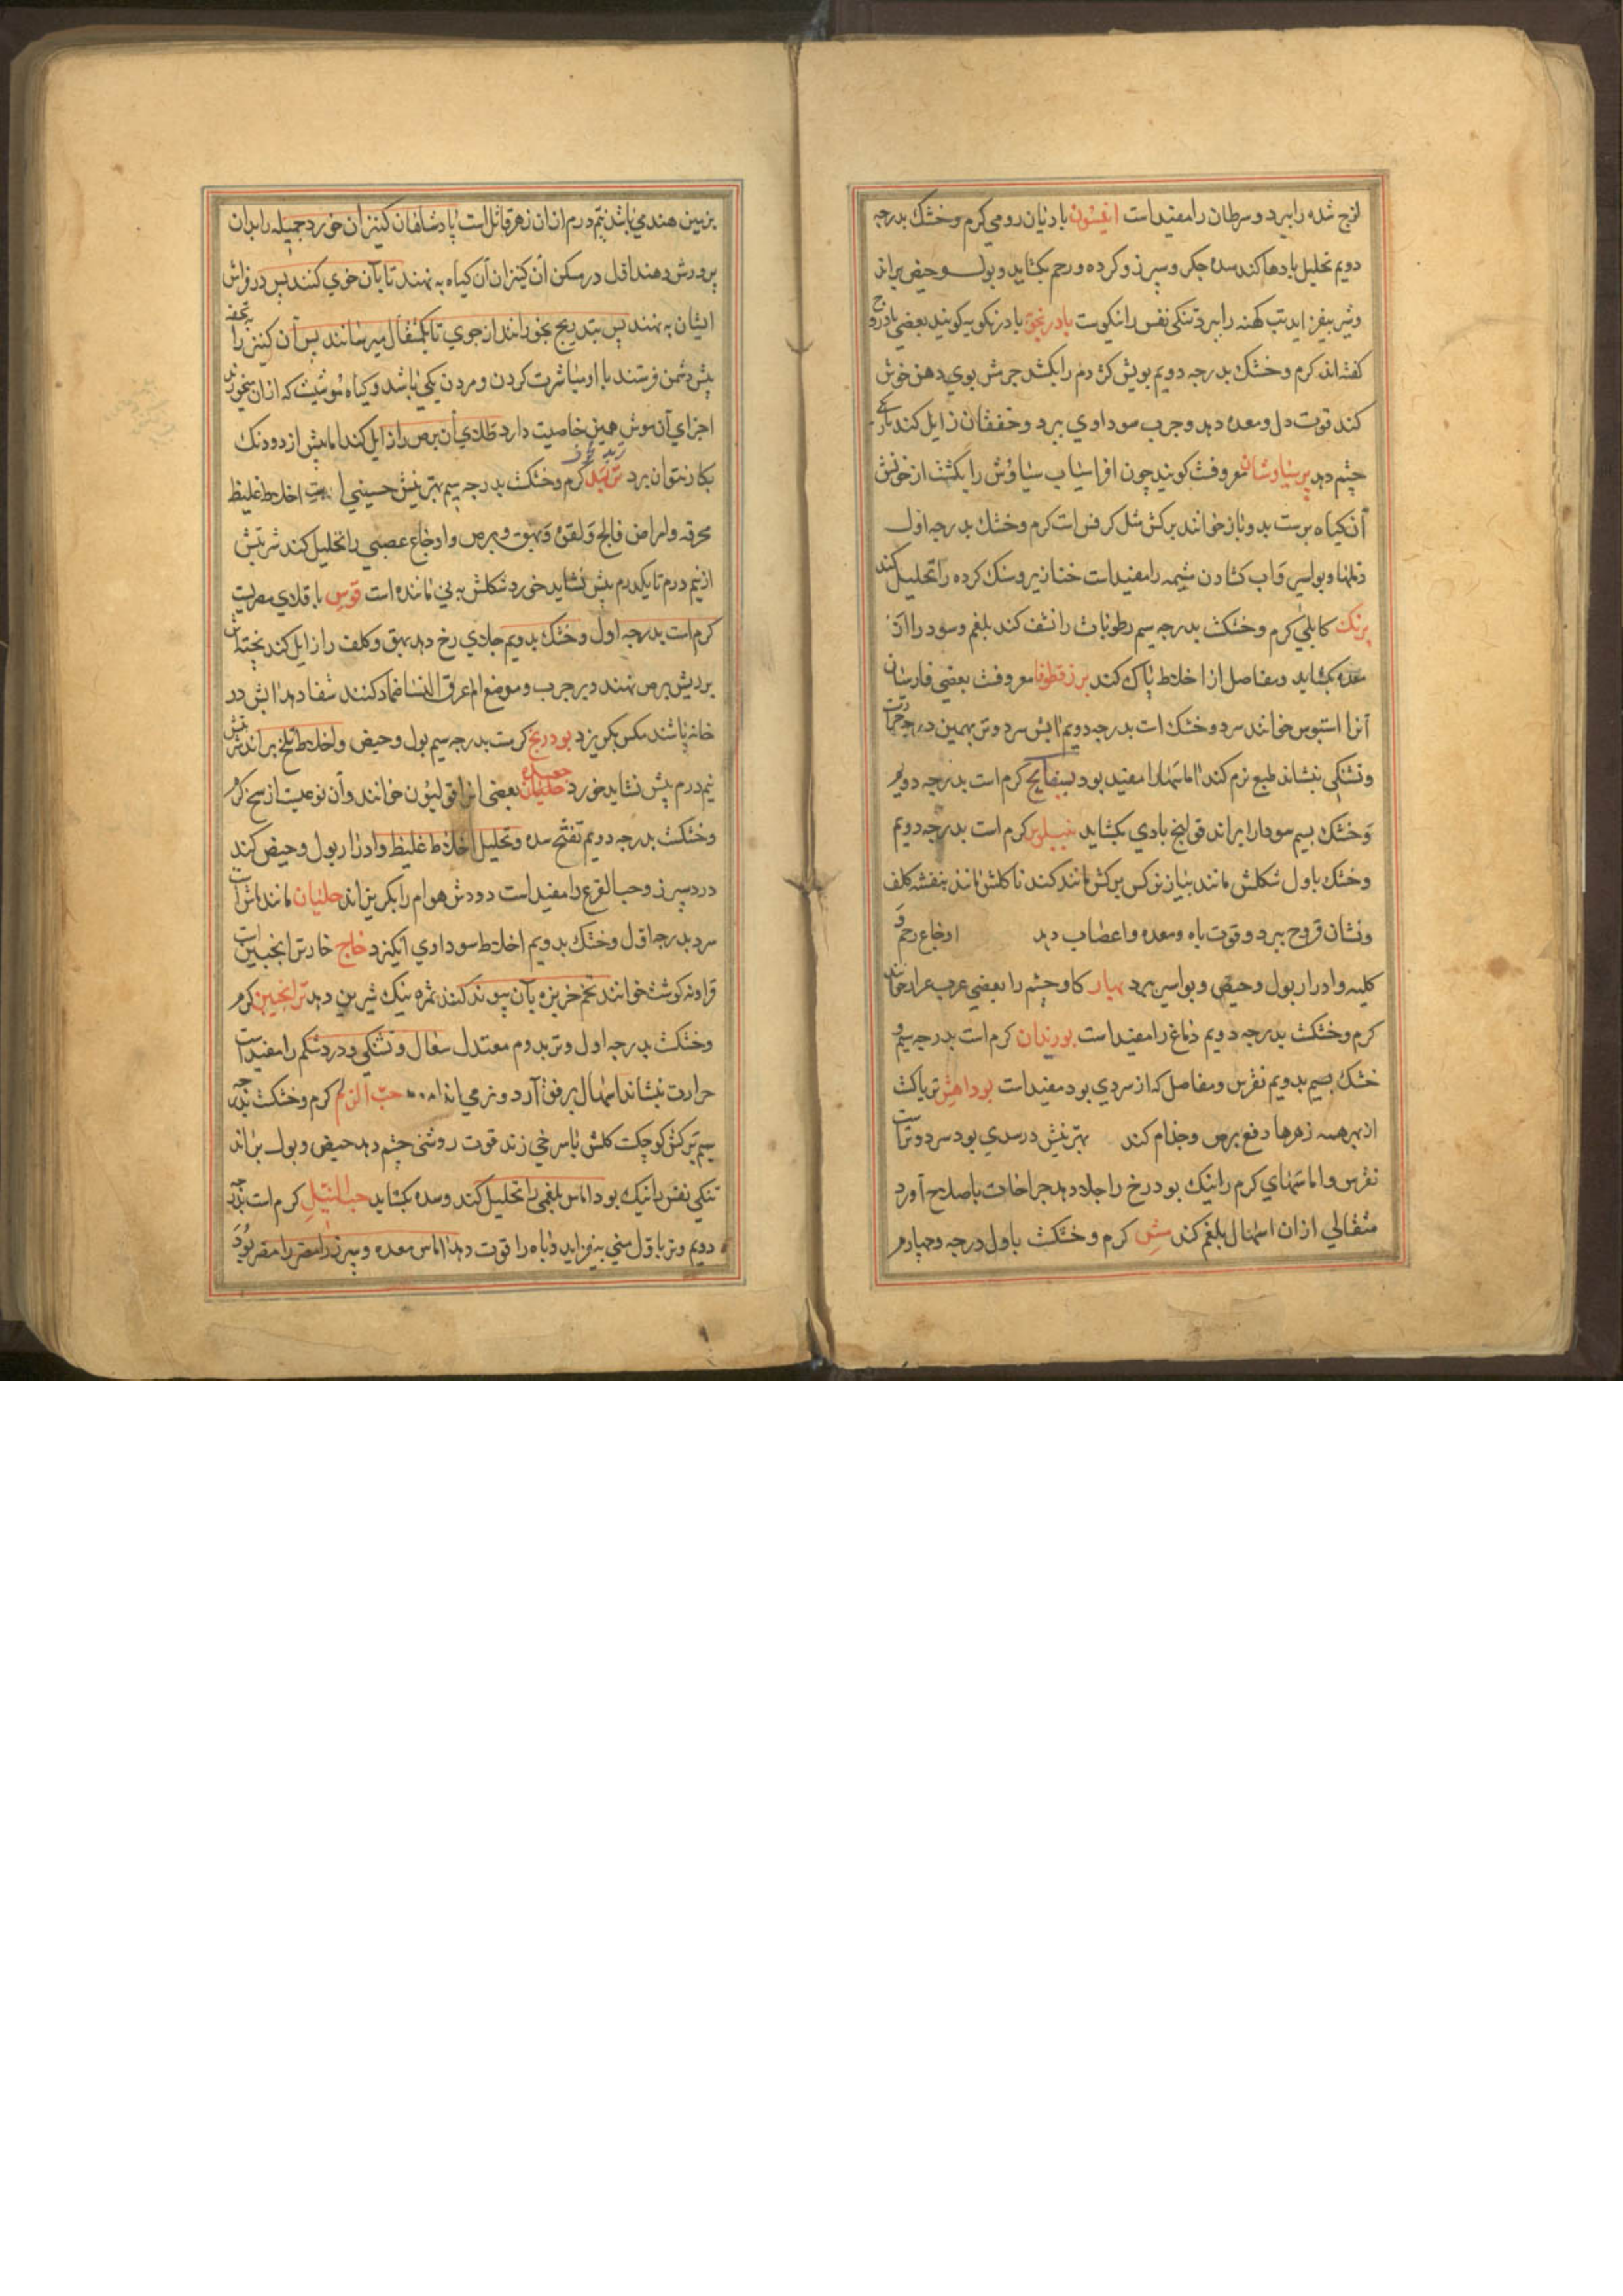 لزج شده را ببرد و سرطان را مفیداست انیسون بادیان رومی کرم وخشک بدرجه
دویم تحلیل بادها کند سده جکر و سپرز و کرده و رحم بکشاید و بول و حیض براند
وشیر بیفزاید تب کهنه را ببرد تنکی نفس را نیکوست بادرنجویه بادرنکبویه کویند بعضی بادروج
کفته اند کرم وخشک بدرجه دویم بویش کژدم را بکشد جرمش بوی دهن خوش
کند قوت دل و معده دهد وجرب سوداوی ببرد وخفقان زایل کند
چشم دهد پرسیاوشان معروفست کویند چون افراسیاب سیاوش را بکشت از خونش
آن کیاه برست بدو باز خوانند برکش مثل کرفس است کرم وخشک بدرجه اول
و بواسیر کشادن مشیمه را مفیداست خنازیر وسنک کرده را تحلیل کند
برنک کابلی کرم وخشکست بدرجه سیم رطوبات را نشف کند بلغم وسودا را از
معده بکشاید ومفاصل از اخلاط پاک کند برزقطونا معروفست بعضی فارسیان
آنرا اسبیوس خوانند سرد وخشک است بدرجه دویم آبش سرد وتر بهمین درجه
وتشنکی بنشاند طبع نرم کند آماسهارا مفید بود بسفایج کرم است بدرجه دویم
وخشک بسیم سودا را براند قولنج بادی بکشاید کرم است بدرجه دویم
وخشک باول شکلش مانند پیاز نرکس برکش مانند کندنا کلش مانند بنفشه کلف
ونشان قروح ببرد وقوت باه ومعده واعصاب دهد اوجاع رحم و
کلیه وادرار بول وحیض وبواسیر ببرد بهار کاوچشم را بعضی عرب عرار خوانند
کرم وخشکست بدرجه دویم دماغ را مفیداست بوزیدان کرم است بدرجه سیم و
خشک بسیم بدویم نقرس ومفاصل که از سردی بود مفیداست تریاکست
از بهر همه زهرها دفع برص وجذام کند بهترینش در سدی بود سرد وتراست
نقرس واماسهای کرم را نیک بود رخ را جلا دهد جراحات باصلاح آورد
مثقالی ازان اسهال بلغم کند کرم وخشکست باول درجه وچهارم
بزمین هندمی باشد نیم درم ازان زهر قاتل است پادشاهان کنیزان خورد جمیله را بدان
پرورش دهند اول در مسکن آن کنیزان آن کیاه به نهند تا بآن خوی کنند پس در فراش
ایشان به نهند پس بتدریج بخورانند از جوی تا بکمثقال میرسانند پس آن کنیز را بتحفه
پیش دشمن فرستند با او مباشرت کردن و مردن یکی باشد وکیاه موشیست که ازان میخورند
اجزای آن موش همین خاصیت دارد طلای آن برص را زایل کند اما بیش از دو دنک
بکار نتوان برد تربد کرم وخشکست بدرجه سیم بهترینش اخلاط غلیظ
محرقه وامراض فالج ولقوه وبهق وبرص واوجاع عصبی را تحلیل کند شربتش
از نیم درم تا یکدرم بیش نشاید خورد شکلش به نی مانند است باقلای مصریست
کرم است بدرجه اول وخشک بدویم جلای رخ دهد بهق وکلف را زایل کند
برریش برص نهند وبرجرب وموضع الم عرق النسا ضماد کنند شفا دهد آبش در
خانه باشند مکس بکریزد کرمست بدرجه سیم بول وحیض واخلاط تلخ براند
نیم درم بیش نشاید خورد بعضی خوانند وآن نوعیست از
وخشکست بدرجه دویم تفتح سده وتحلیل اخلاط غلیظ وادرار بول وحیض کند
درد سپرز وحب القرع را مفیداست دودش هوام را بکریزاند مانند ماش است
سرد بدرجه اول وخشک بدویم اخلاط سوداوی انکیزد حاج خار ترانجبین است
خوانند تخم خربزه بآن پیوند کنند ثمره نیک شیرین دهد ترانجبین کرم
وخشکست بدرجه اول وتر بدوم معتدل سعال وتشنکی ودرد شکم را مفیداست
حرارت بنشاند اسهال برفق آرد حب الزلم کرم وخشکست بدرجه
سیم برکش کوچکست کلش با سرخی زند قوت روشنی چشم دهد حیض وبول براند
تنکی نفس را نیک بود اماس بلغمی را تحلیل کند وسده بکشاید حب النیل کرم است بدرجه
دویم وتر باول منی بیفزاید وباه را قوت دهد آماس معده وسپرز را مضر بود